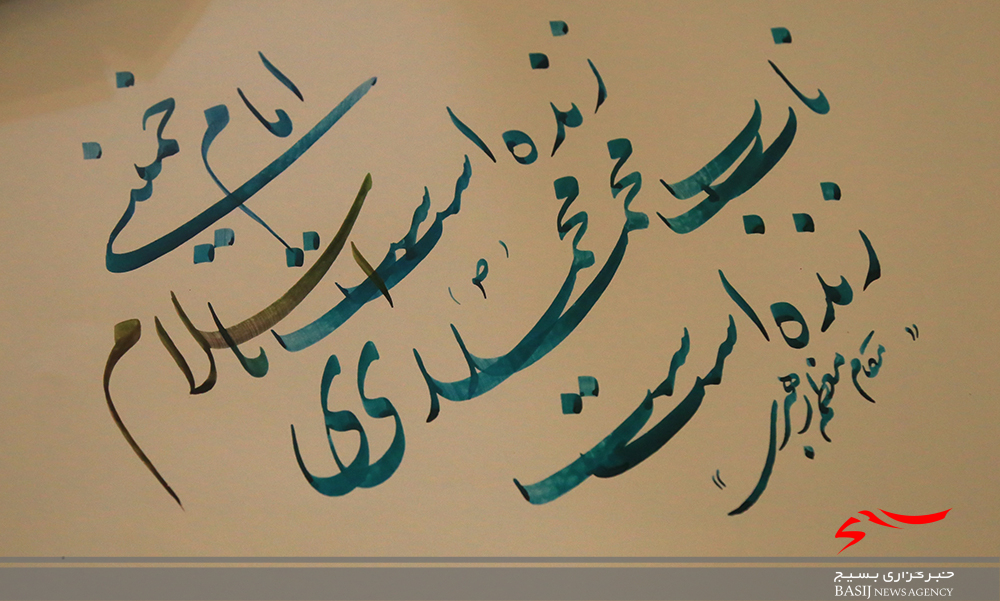 امام خمینی
زنده است تا اسلام
ناب محمدی ص
زنده است
"مقام معظم رهبری"
خبرگزاری بسیج
BASIJ NEWS AGENCY